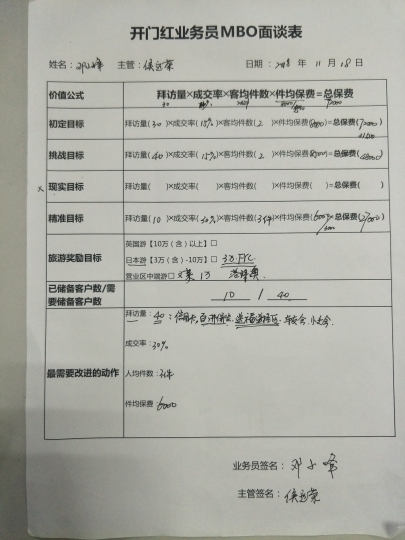 开门红业务员MBO面谈表
姓名： 主管：侯远荣 日期：2018年11月18日
价值公式 拜访量×成交率×客均件数×件均保费=总保费
初定目标 拜访量(30)×成交率(15%)×客均件数(2)×件均保费(8000)=总保费(72000)
挑战目标 拜访量(40)×成交率(15%)×客均件数(2)×件均保费()=总保费()
现实目标 拜访量( )×成交率( )×客均件数( )×件均保费( )=总保费( )
精准目标 拜访量(10)×成交率(30%)×客均件数(3件)×件均保费(6000)=总保费(27000)
旅游奖励目标
英国游【10万（含）以上】□
日本游【3万（含）-10万】□ 3万FYC
营业区中端游□ 1万 港珠澳
已储备客户数/需要储备客户数 10 / 40
最需要改进的动作
拜访量：40：信用卡，
成交率：30%
人均件数：3件
件均保费 6000
业务员签名：邓小峰
主管签名：侯远荣